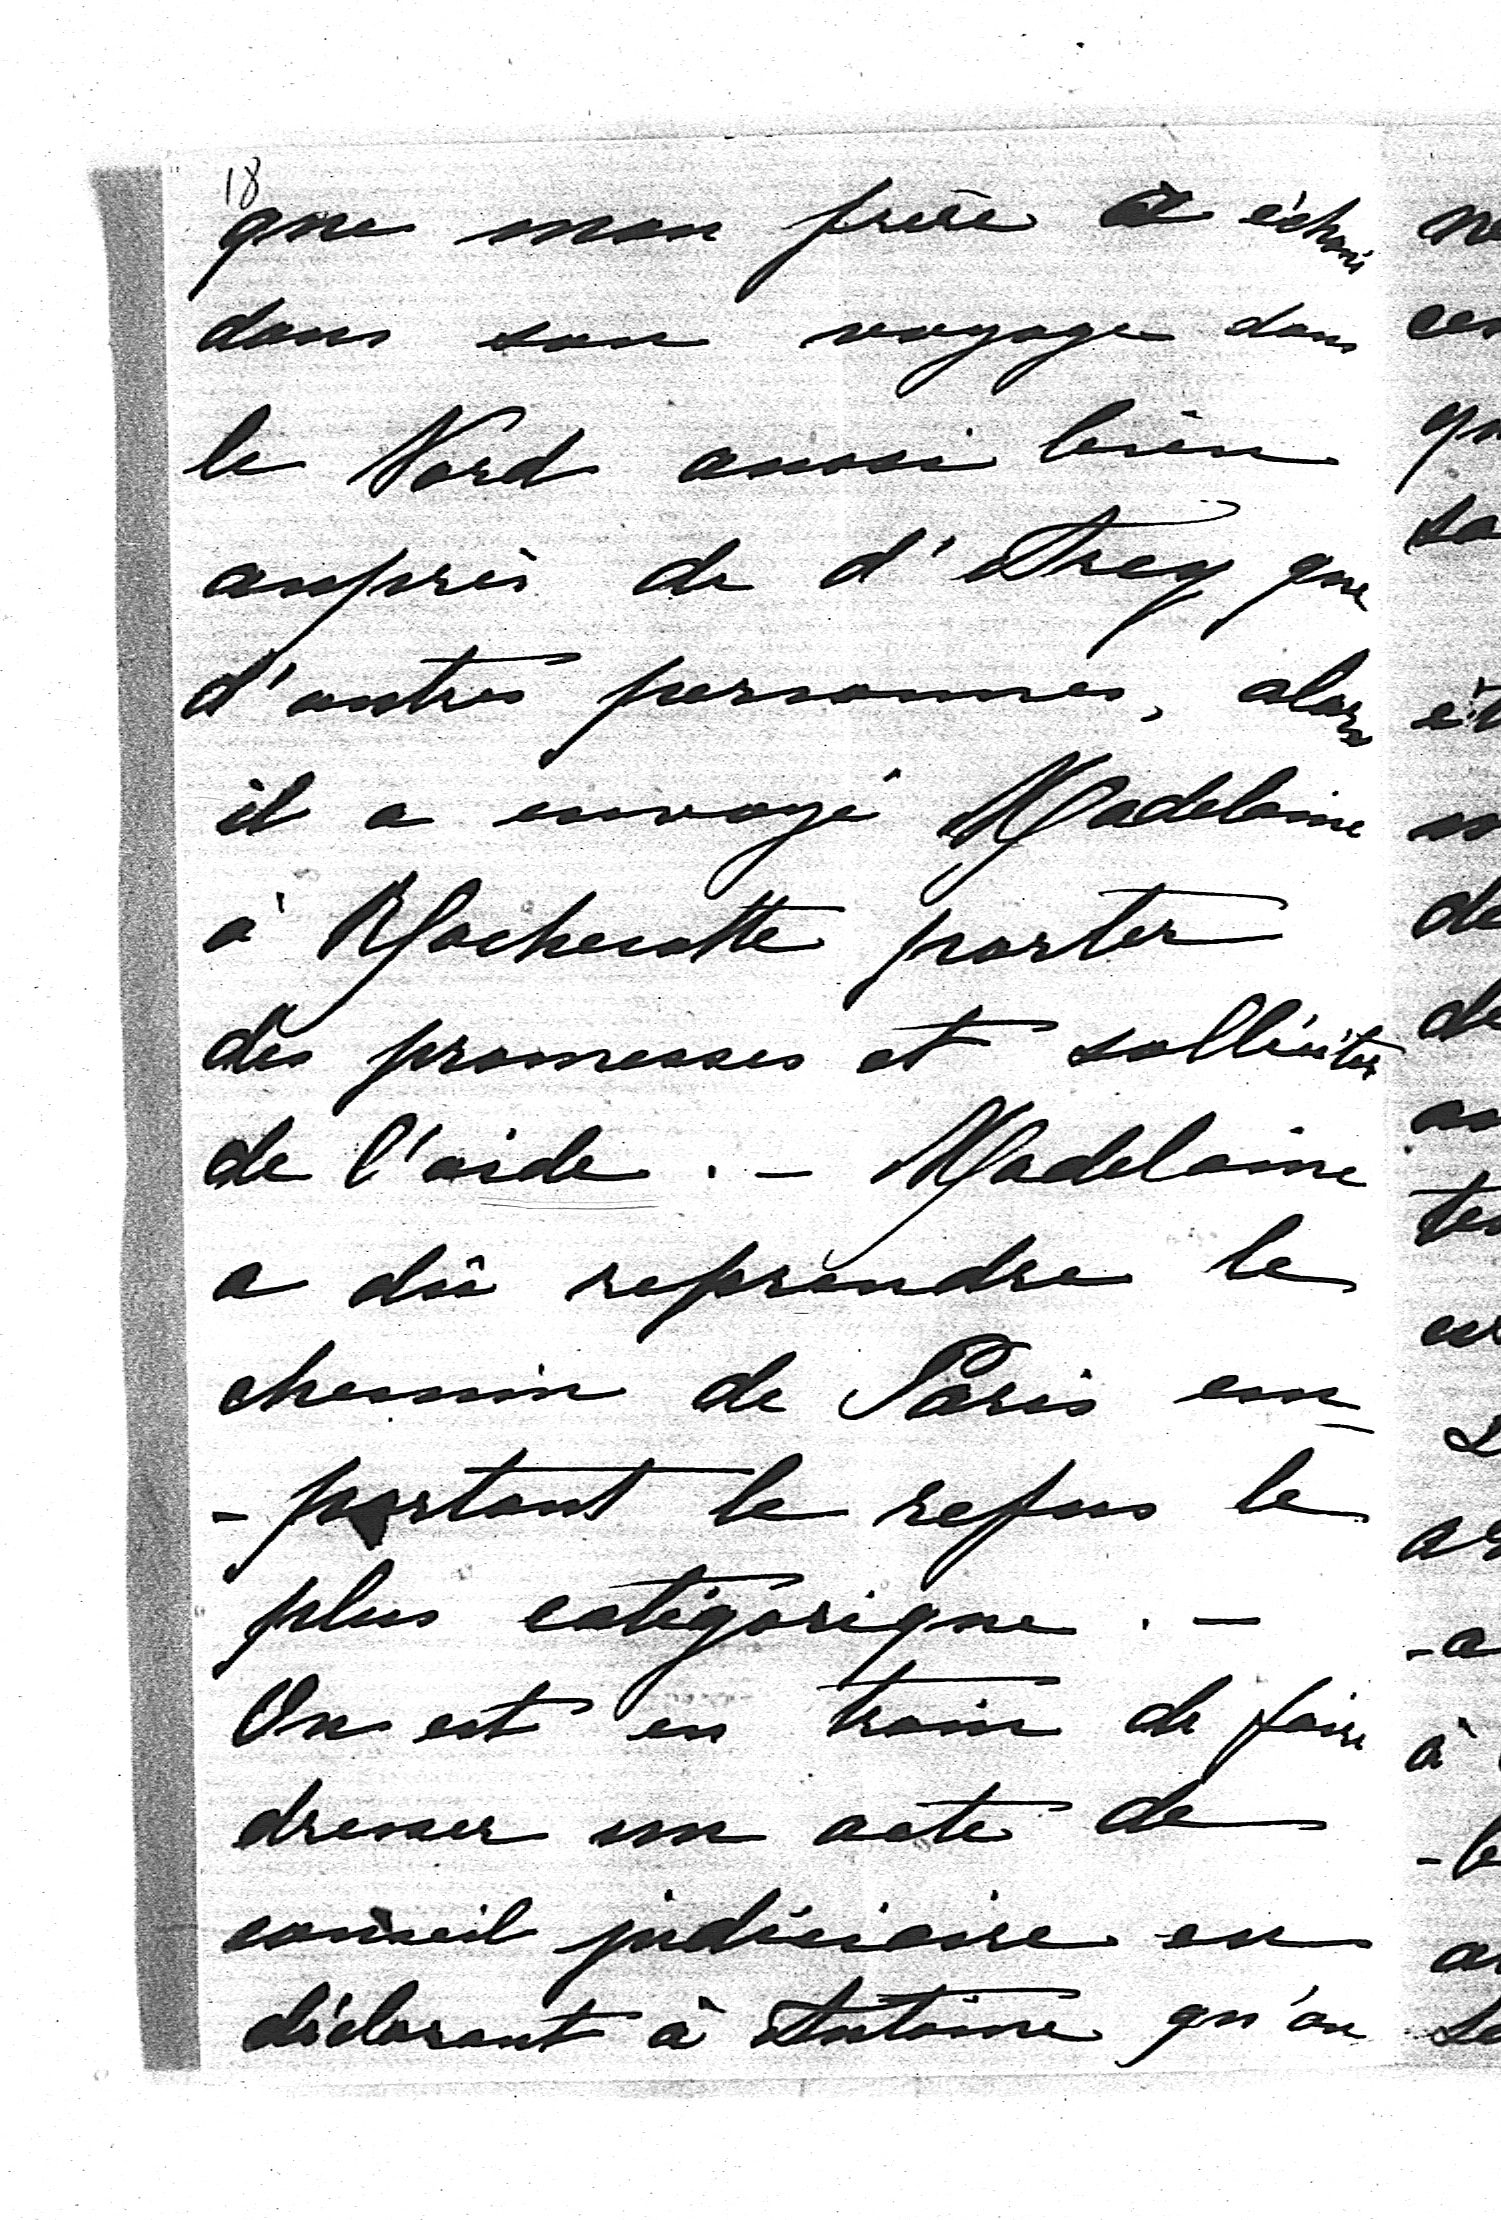 18
que mon frère a échoué
dans son voyage dans
le Nord aussi bien
auprès de d'Arcy que
d'autres personnes, alors
il a envoyé Madelaine
à Rochecotte porter
des promesses et solliciter
de l'aide . — Madelaine
a dû reprendre le
chemin de Paris em-
-portant le refus le
plus catégorique . —
On est en train de faire
dresser un acte de
conseil judiciaire en
déclarant à Antoine qu'on